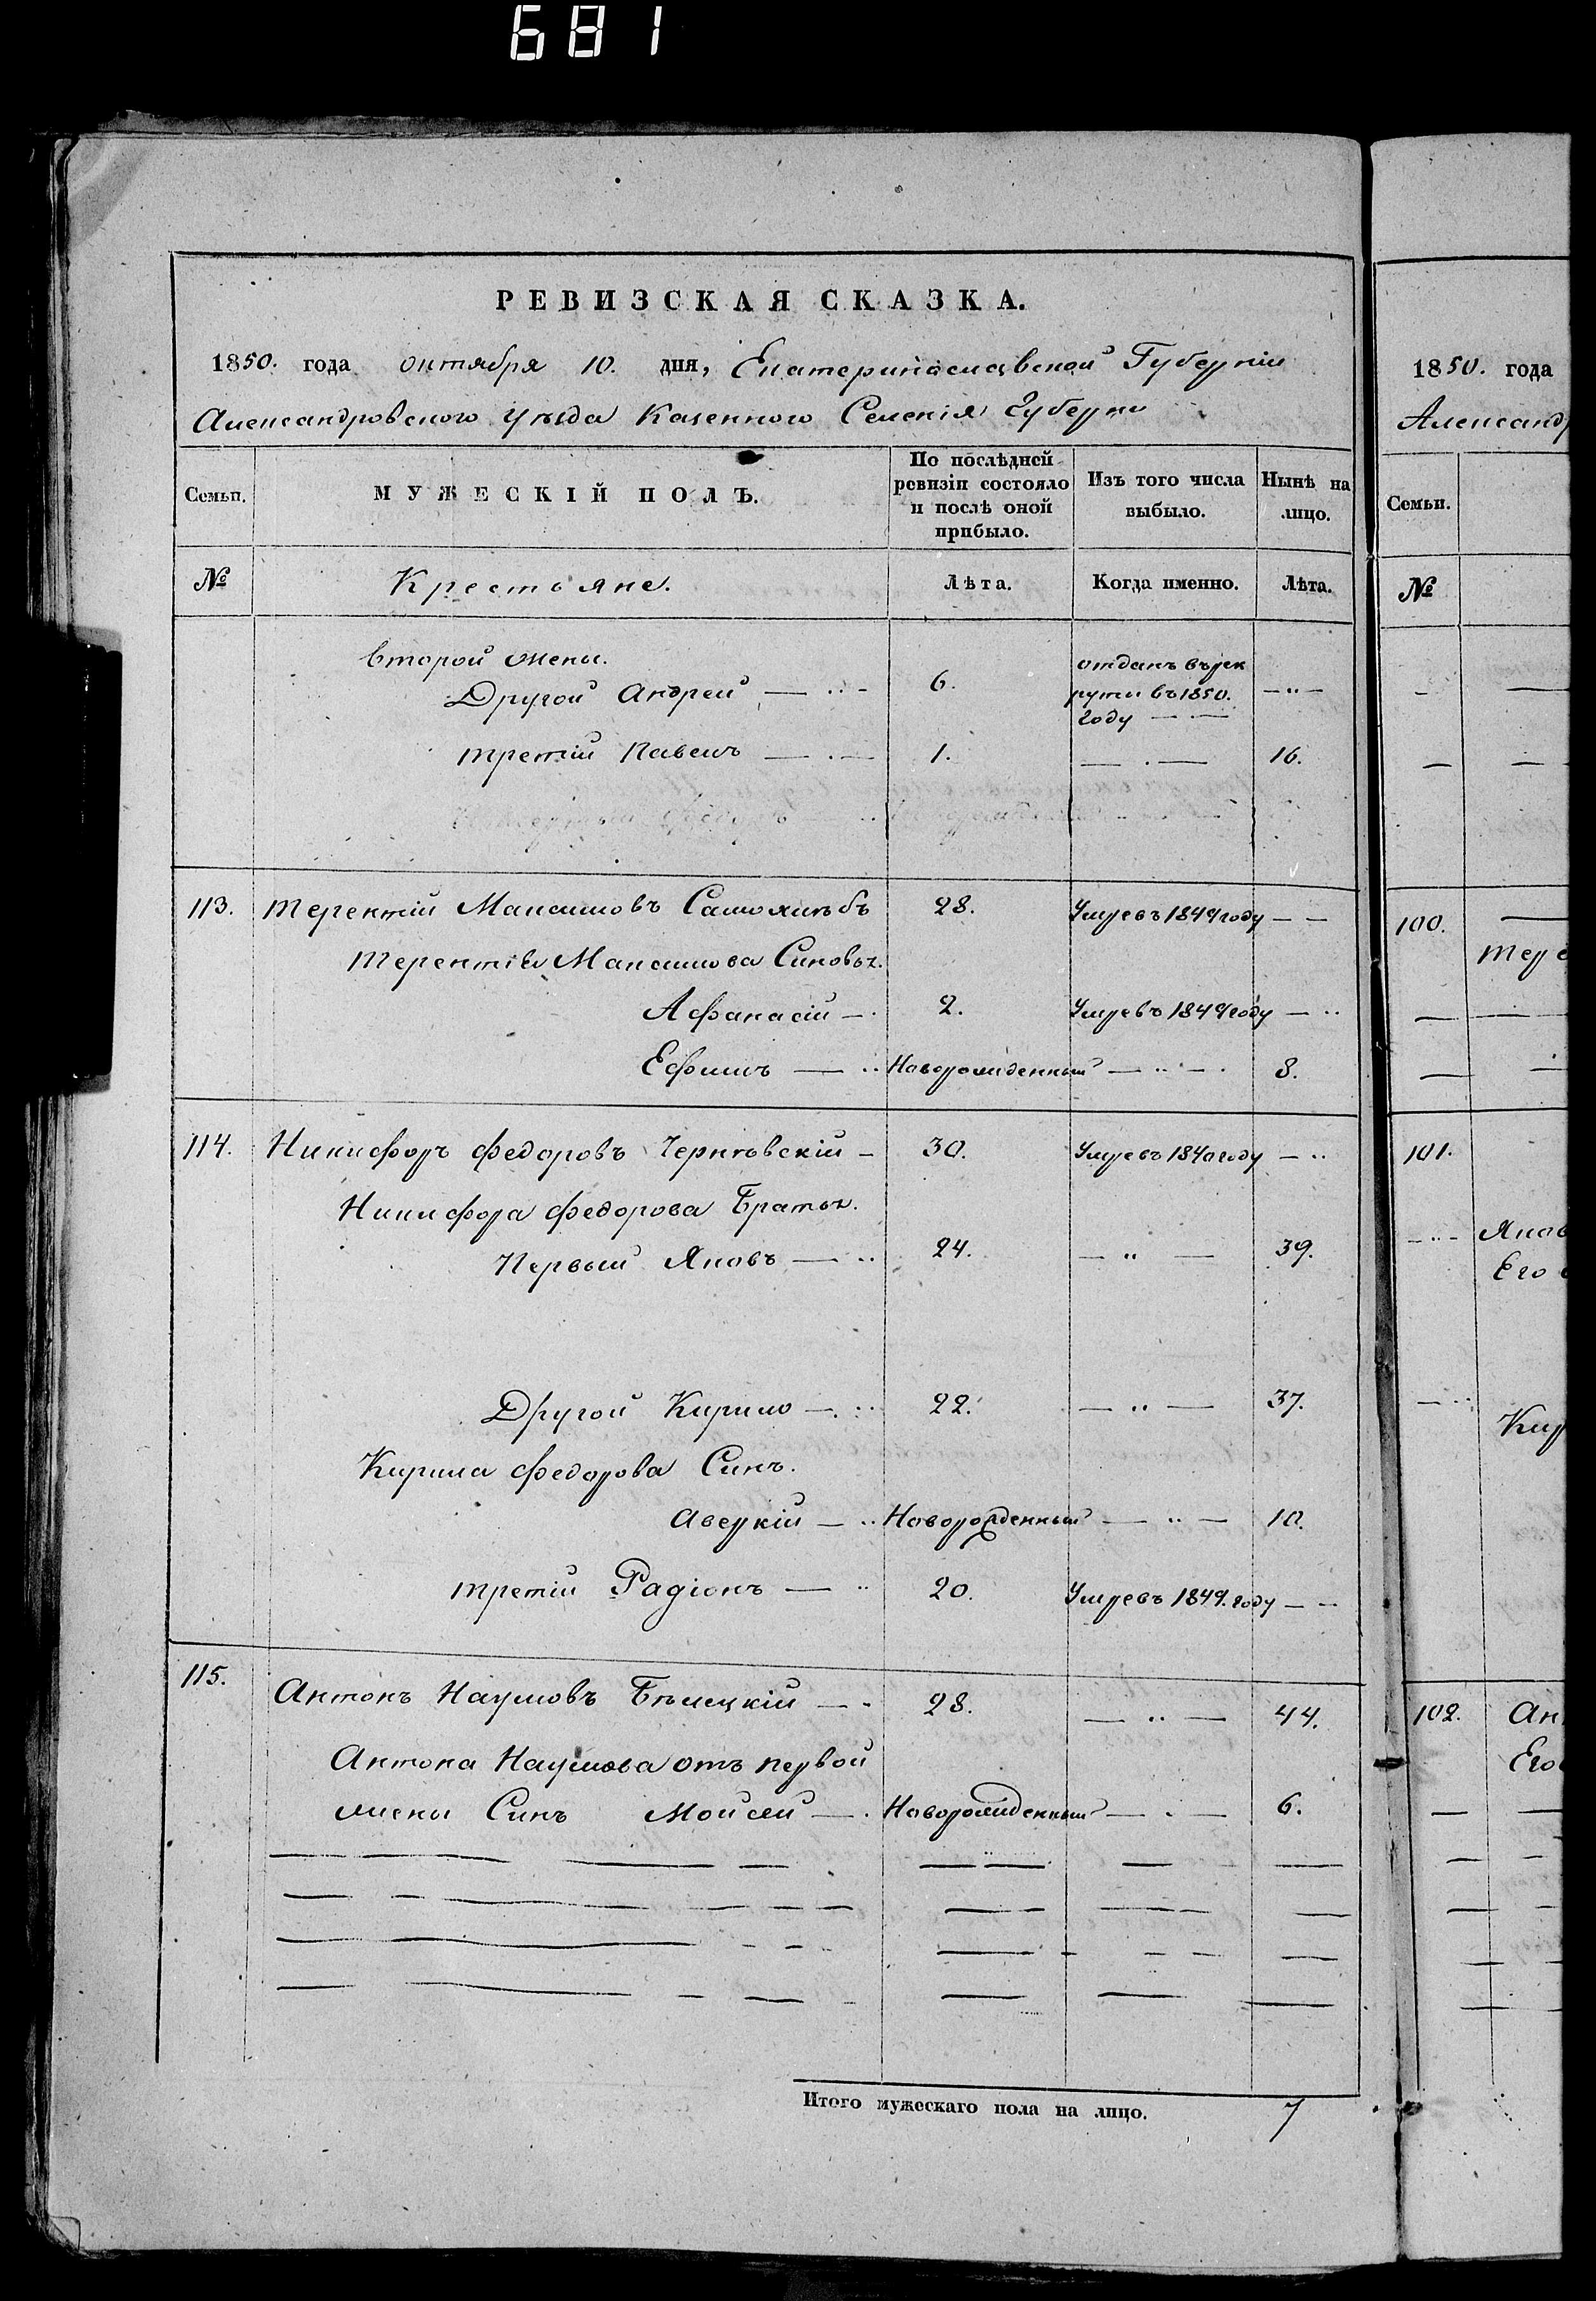 681
РЕВИЗСКАЯ СКАЗКА.
1850. года октября 10. дня, Екатеринославской Губерніи
Александровского уѣзда Казенного Селенія Губерки
Семьи.
МУЖЕСКІЙ ПОЛЪ.
По послѣдней ревизіи состояло и послѣ оной прибыло.
Изъ того числа выбыло.
Нынѣ на лицо.
№
Крестьяне.
Лѣта.
Когда именно.
Лѣта.
второй жены.
Другой Андрей — 6. отданъ въ рек
рути въ 1850.
году —
третій Павелъ — 1. — 16.
113. Терентій Максимовъ Самохлѣбъ 28. Умре въ 1849 году —
Терентія Максимова Синовья.
Афанасій — 2. Умре въ 1849 году —
Ефимъ — Новорожденный — 8.
114. Никифоръ Федоровъ Чернѣвскій — 30. Умре въ 1840 году —
Никифора Федорова Братья.
Первый Яковъ — 24. — 39.
Другой Кирило — 22. — 37.
Кирила Федорова Синъ.
Аверкій — Новорожденный — 10.
третій Радіонъ — 20. Умре въ 1849. году —
115. Антонъ Наумовъ Бѣлецкій — 28. — 44.
Антона Наумова отъ первой
жены Синъ Мойсей — Новорожденный — 6.
Итого мужескаго пола на лицо. 7
1850. года
Александр
Семьи.
№
100.
Тере
101.
Яков
Его
Кир
102. Ан
Его